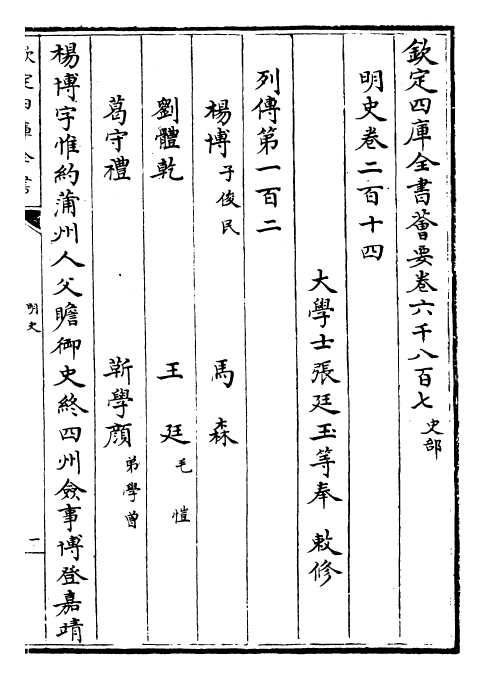 欽定四庫全書薈要卷六千八百七 史部
明史卷二百十四
大學士張廷玉等奉 敕修
列傳第一百二
楊博 子俊民 馬森
劉體乾 王廷 毛愷
葛守禮 靳學顔 弟學曾
楊博字惟約蒲州人父瞻御史終四州僉事博登嘉靖
欽定四庫全書
明史
一